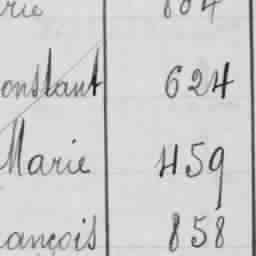 rie 804
onstant 624
Marie 459
ançois 858